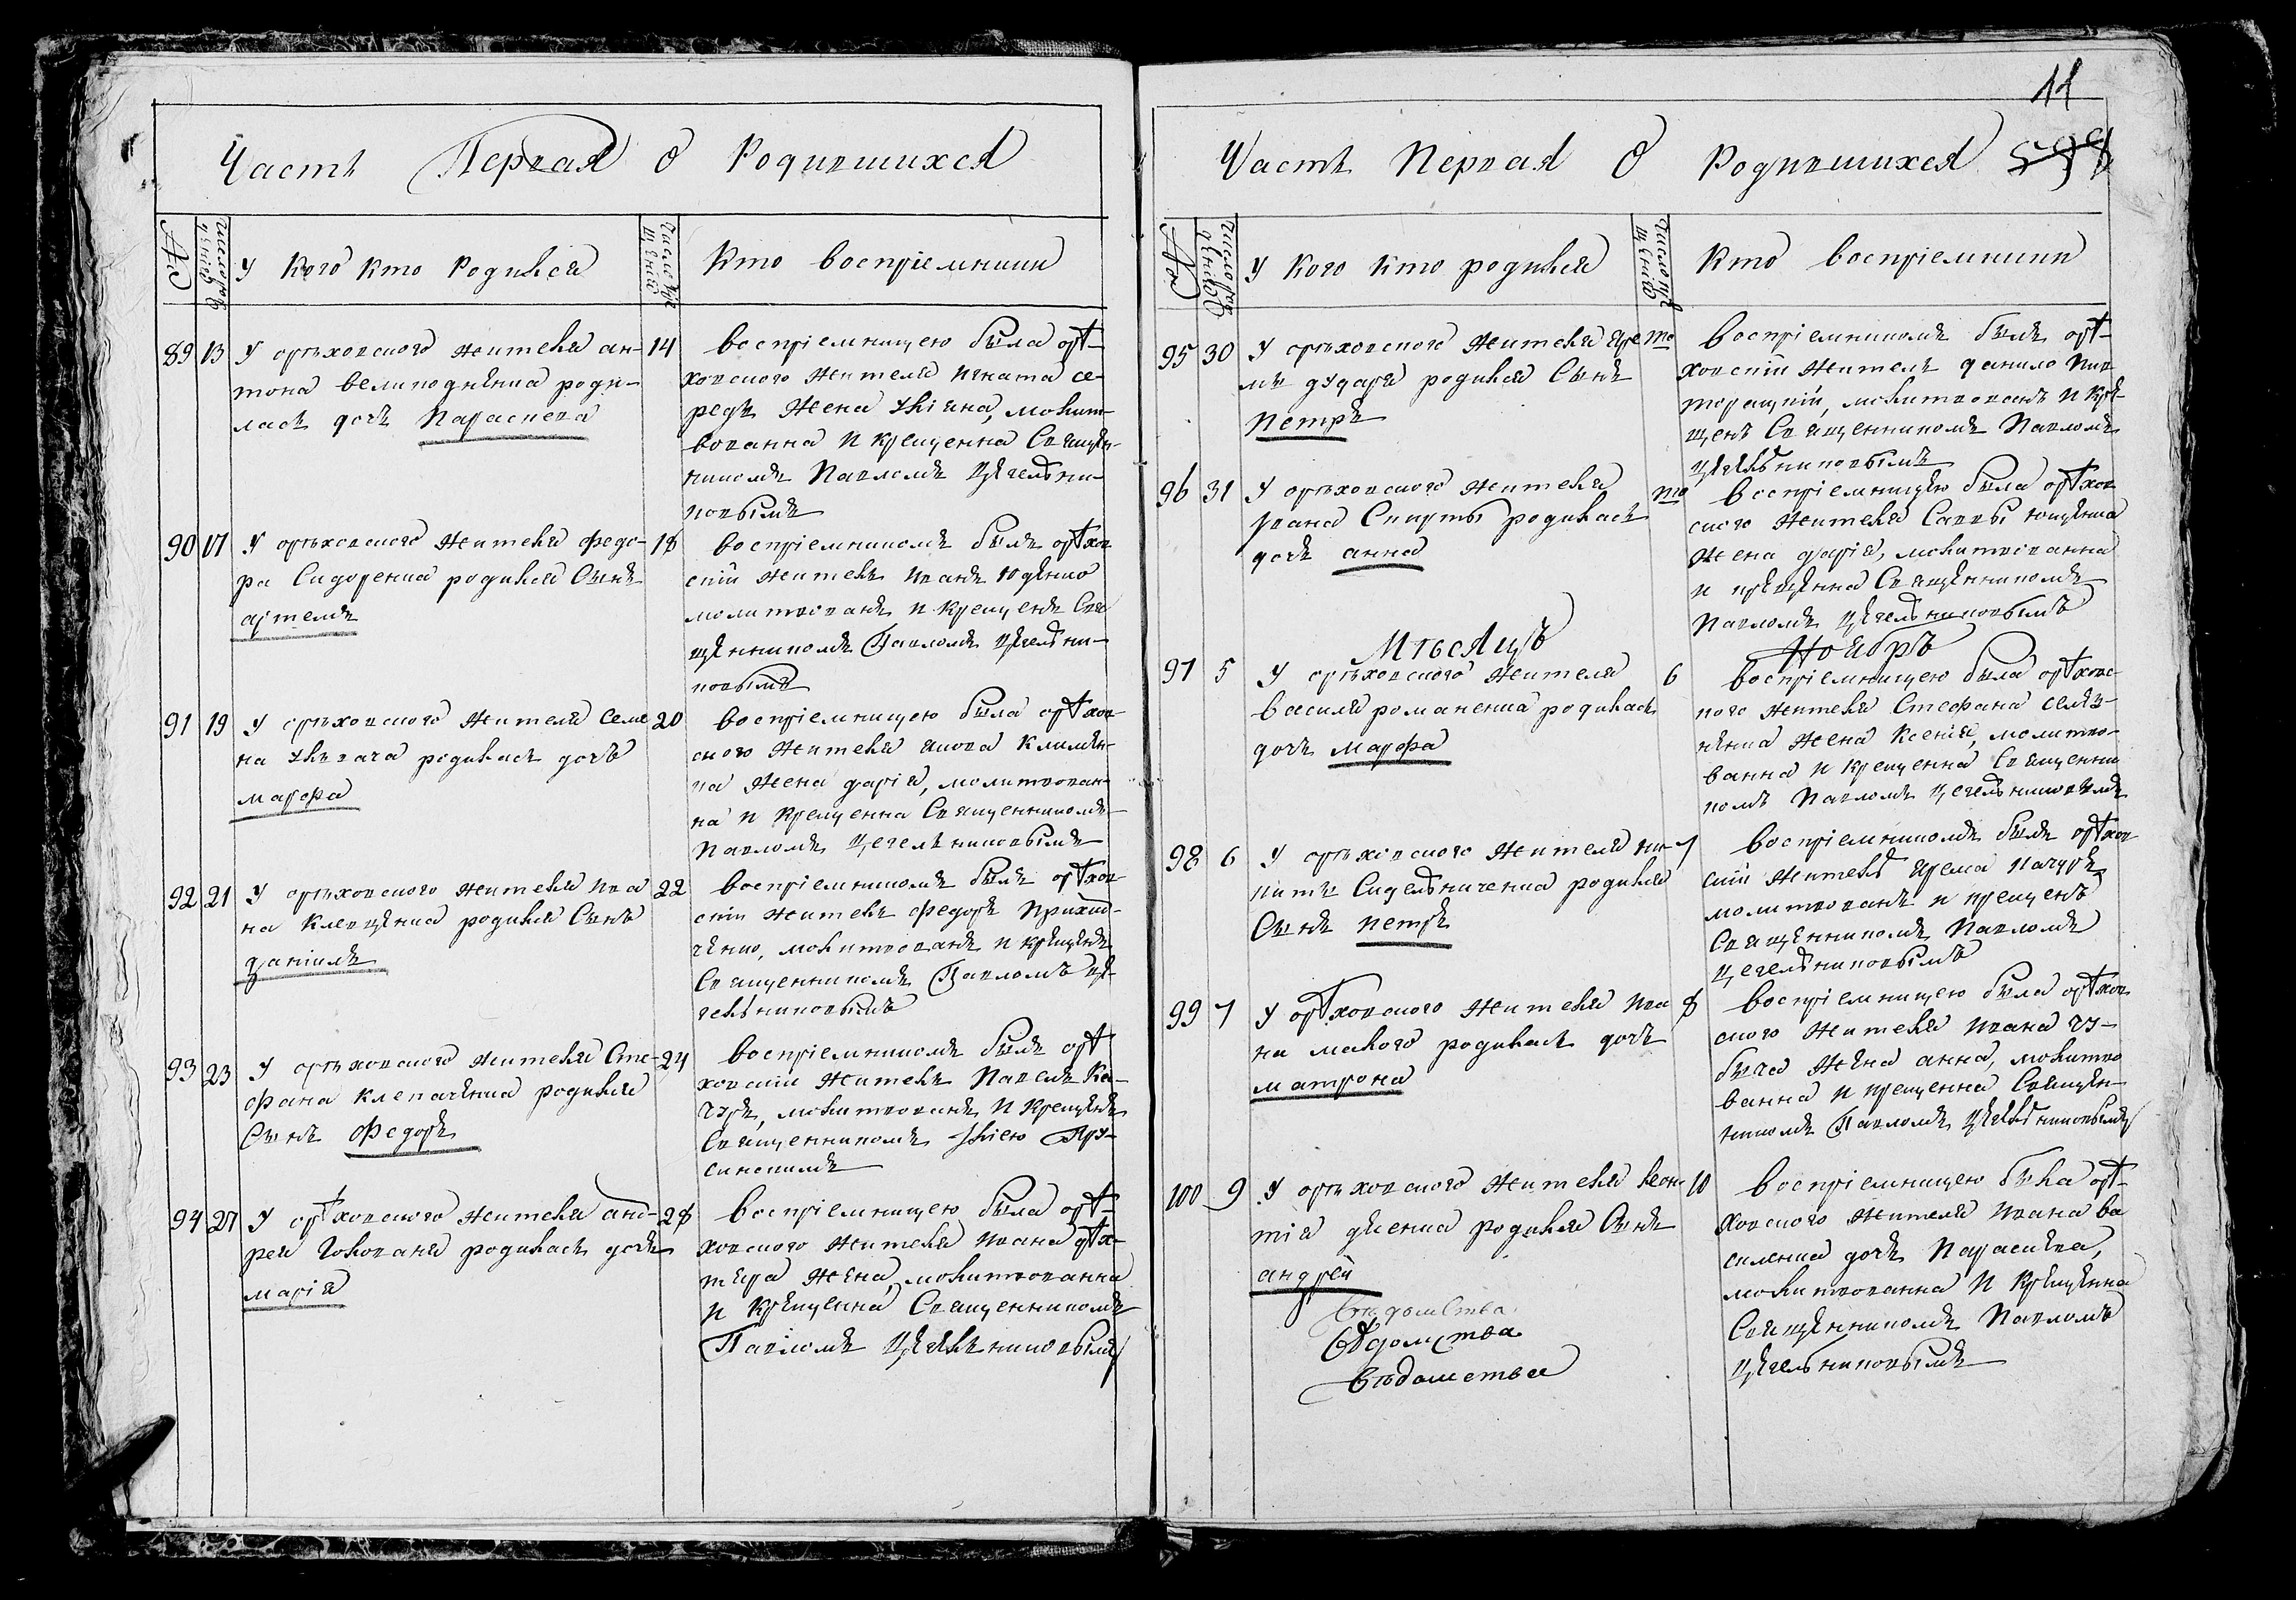 Часть Первая О Родившихся
№
число рождений
У кого кто родился
число крещений
Кто восприемники
89 13 У орѣховского жителя ан-
тона великодненка роди-
лась дочь Параскева
14 восприемницею была орѣ-
ховского жителя игната се-
реды жена улияна, молит-
вованна и крещенна Священ-
никомъ Павломъ Цегельни-
ковымъ
90 17 У орѣховского жителя федо-
ра Сидоренка родился Сынъ
артемъ
18 восприемникомъ былъ орѣхов
скій житель иванъ юденко
молитвованъ и крещенъ Свя
щенникомъ Павломъ Цегельни-
ковымъ
91 19 У орѣховского жителя семе
на родилась дочь
марфа
20 восприемницею была орѣхов
ского жителя якова клименка
жена дарія, молитвован-
на и крещенна Священникомъ
Павломъ Цегельниковымъ
92 21 У орѣховского жителя ива
на клевценка родился Сынъ
даніилъ
22 восприемникомъ былъ орѣхов
скій житель федоръ Приход-
ченко, молитвованъ и крещенъ
Священникомъ Павломъ Це-
гельниковымъ
93 23 У орѣховского жителя Сте-
фана клепаченка родился
Сынъ федоръ
24 восприемникомъ былъ орѣ
ховскій житель Павелъ Ка-
чуръ, молитвованъ и крещенъ
Священникомъ Иліею Пру-
синскимъ
94 27 У орѣховского жителя анд-
рея голована родилась дочь
марія
28 восприемницею была орѣ-
ховского жителя ивана дѣх-
тяра жена, молитвованна
и крещенна Священникомъ
Павломъ Цегельниковымъ
11
Часть Первая О Родившихся
№
число рождений
У кого кто родился
число крещений
Кто восприемники
95 30 У орѣховского жителя яре
мы дударя родился Сынъ
Петръ
то восприемникомъ былъ орѣ-
ховскій житель данило Пив
торацкій, молитвованъ и кре-
щенъ Священникомъ Павломъ
Цегельниковымъ
96 31 У орѣховского жителя
ивана Скирты родилась
дочь анна
то восприемницею была орѣхов
ского жителя Саввы ющенка
жена дарія, молитвованна
и крещенна Священникомъ
Павломъ Цегельниковымъ
Мѣсяцъ Ноябрь
97 5 У орѣховского жителя
василя романенка родилась
дочь марфа
6 восприемницею была орѣховс-
кого жителя Стефана семе-
ненка жена ксенія, молитво-
ванна и крещенна Священни
комъ Павломъ Цегельниковымъ
98 6 У орѣховского жителя ни-
киты Сидельниченка родился
Сынъ петръ
7 восприемникомъ былъ орѣхов
скій житель ярема качуръ
молитвованъ и крещенъ
Священникомъ Павломъ
Цегельниковымъ
99 7 У орѣховского жителя ива
на малого родилась дочь
матрона
8 восприемницею была орѣхов
ского жителя ивана чу-
быча жена анна, молитво
ванна и крещенна Священ-
никомъ Павломъ Цегельниковымъ
100 9 У орѣховского жителя леон
тія дяченка родился Сынъ
андрей
10 восприемницею была орѣ-
ховского жителя ивана ва
силенка дочь Параскева,
молитвованна и крещенна
Священникомъ Павломъ
Цегельниковымъ
Вѣдомства
Вѣдомства
Вѣдомства